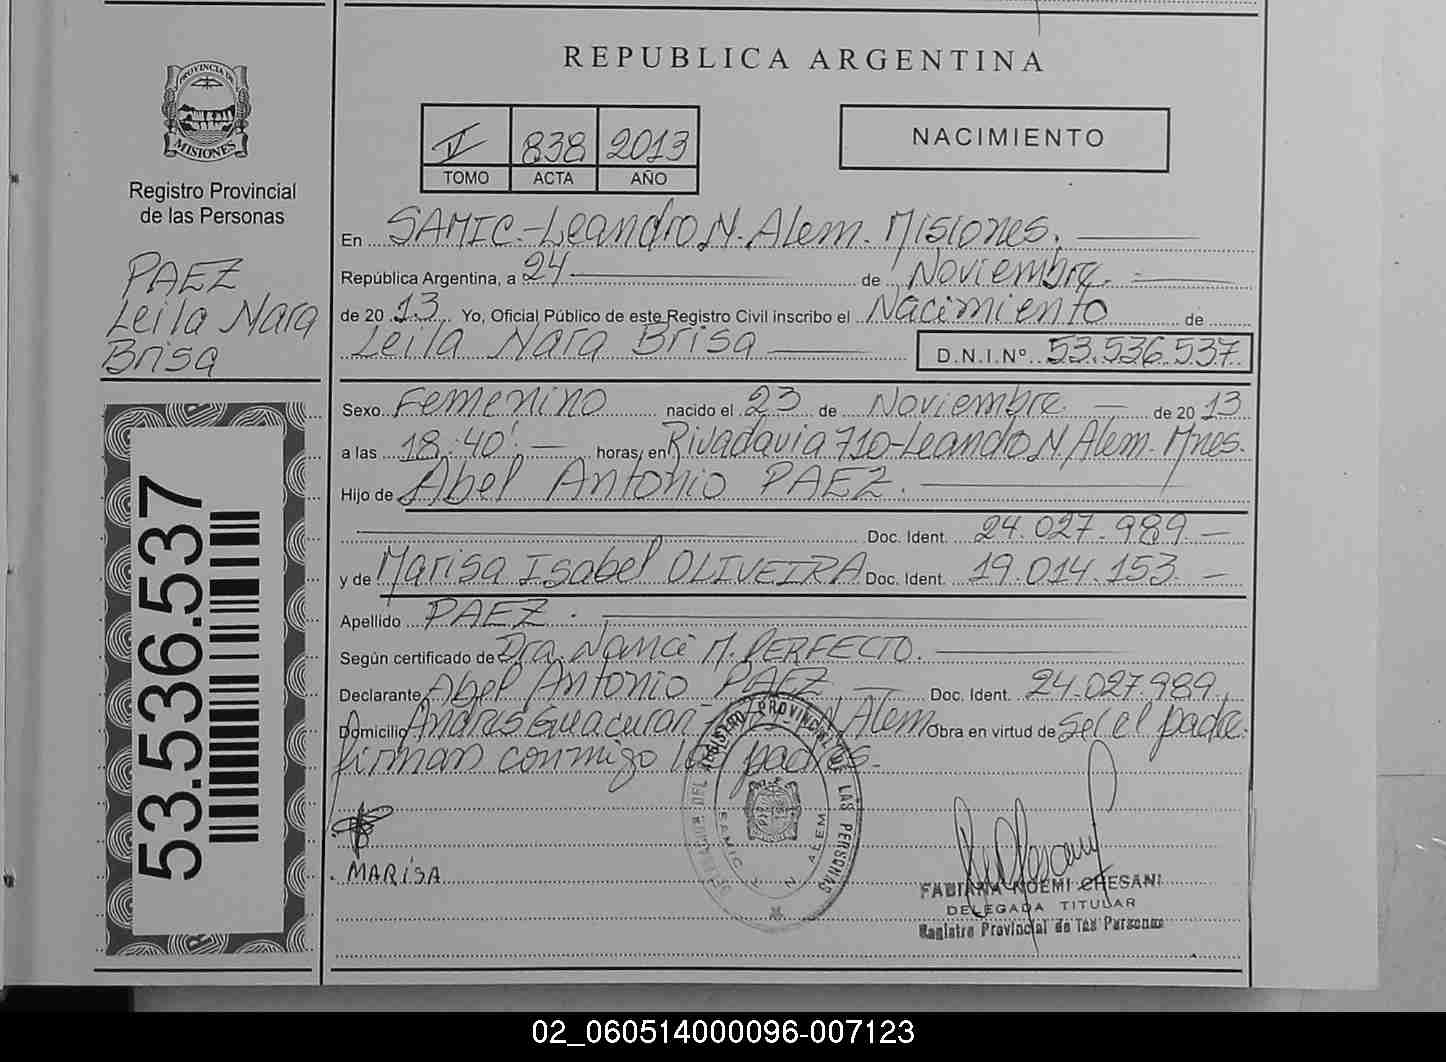 PROVINCIA DE
MISIONES
Registro Provincial
de las Personas
PAEZ
Leila Nara
Brisa
53.536.537
REPUBLICA ARGENTINA
838 2013
TOMO ACTA AÑO
NACIMIENTO
En SAMIC.-Leandro N. Alem. Misiones.
República Argentina, a 24 de Noviembre.
de 20 13 Yo, Oficial Público de este Registro Civil inscribo el Nacimiento de
Leila Nara Brisa D.N.I.Nº 53.536.537
Sexo Femenino nacido el 23 de Noviembre de 20 13
a las 18:40'. horas, en Rivadavia 710-Leandro N. Alem. Mnes.
Hijo de Abel Antonio PAEZ.
Doc. Ident. 24.027.989
y de Marisa Isabel OLIVEIRA Doc. Ident. 19.014.153
Apellido PAEZ.
Según certificado de Dra. Nanci M. PERFECTO.
Declarante Abel Antonio PAEZ Doc. Ident. 24.027.989
Domicilio Andres Guacurari N. Alem Obra en virtud de ser el padre.
firman conmigo los padres.
REGISTRO PROVINCIAL DE LAS PERSONAS
SAMIC L N ALEM
MARISA
FABIANA NOEMI CHESANI
DELEGADA TITULAR
Registro Provincial de las Personas
02_060514000096-007123